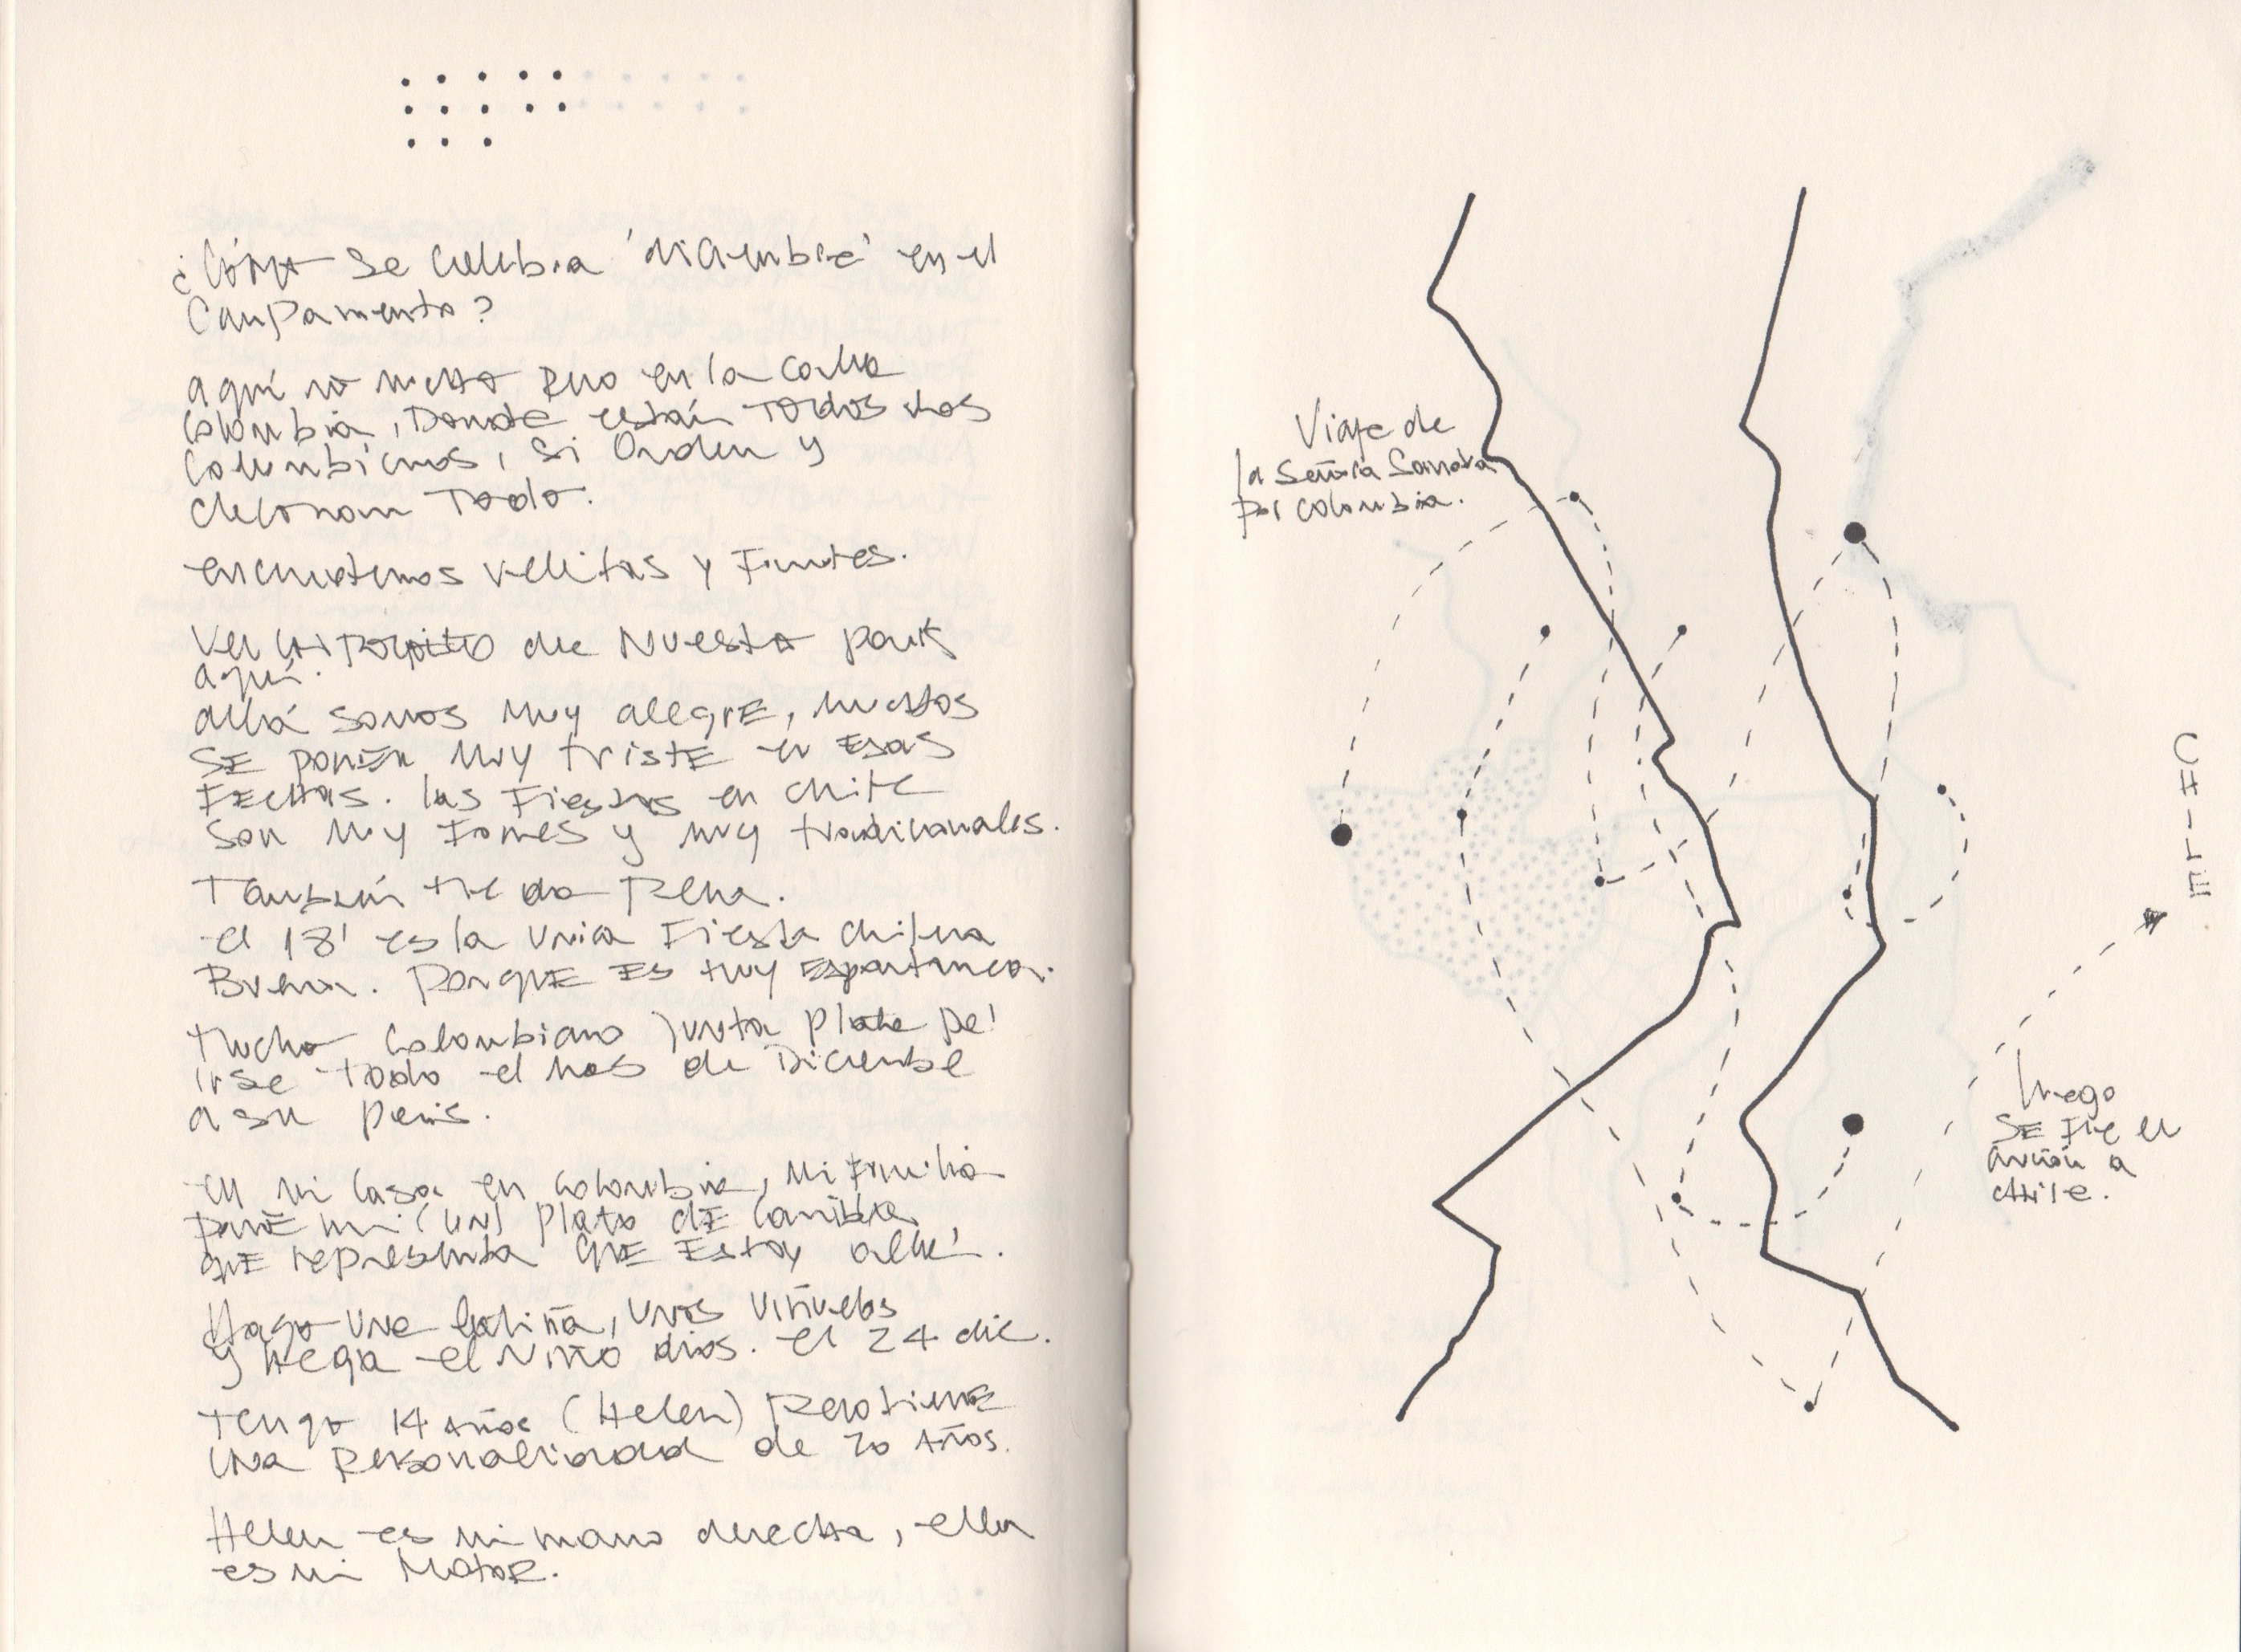 ¿Cómo se celebra 'diciembre' en el
Campamento?
aquí no mucho pero en la calle
Colombia, Donde están TODOS los
Colombianos, si Orden y
decoran Todo.
encendemos velitas y
Ver un de Nuestro país
aquí.
allá somos muy alegre, muchos
SE PONEN MUY TRISTE en ESAS
FECHAS. las Fiestas en chile
son muy Fomes y muy tradicionales.
También me da Pena.
el 18' es la unica Fiesta chilena
Buena. PorquE Es muy Espontanea.
Mucho Colombiano junta plata pa'
irse todo el mes de Diciembre
a su país.
en mi casa en Colombia, mi Familia
ponE mi (un) plato dE comida
quE representa quE Estoy allá.
Hago una , unos
y llega el Niño dios. el 24 dic.
Tengo 14 Años (Helen) Pero tiene
una Personalidad de 20 Años.
Helen es mi mano derecha, ella
es mi MotoR.
Viaje de
la Señora Sandra
por Colombia.
CHILE
luego
SE FuE en
avión a
chile.